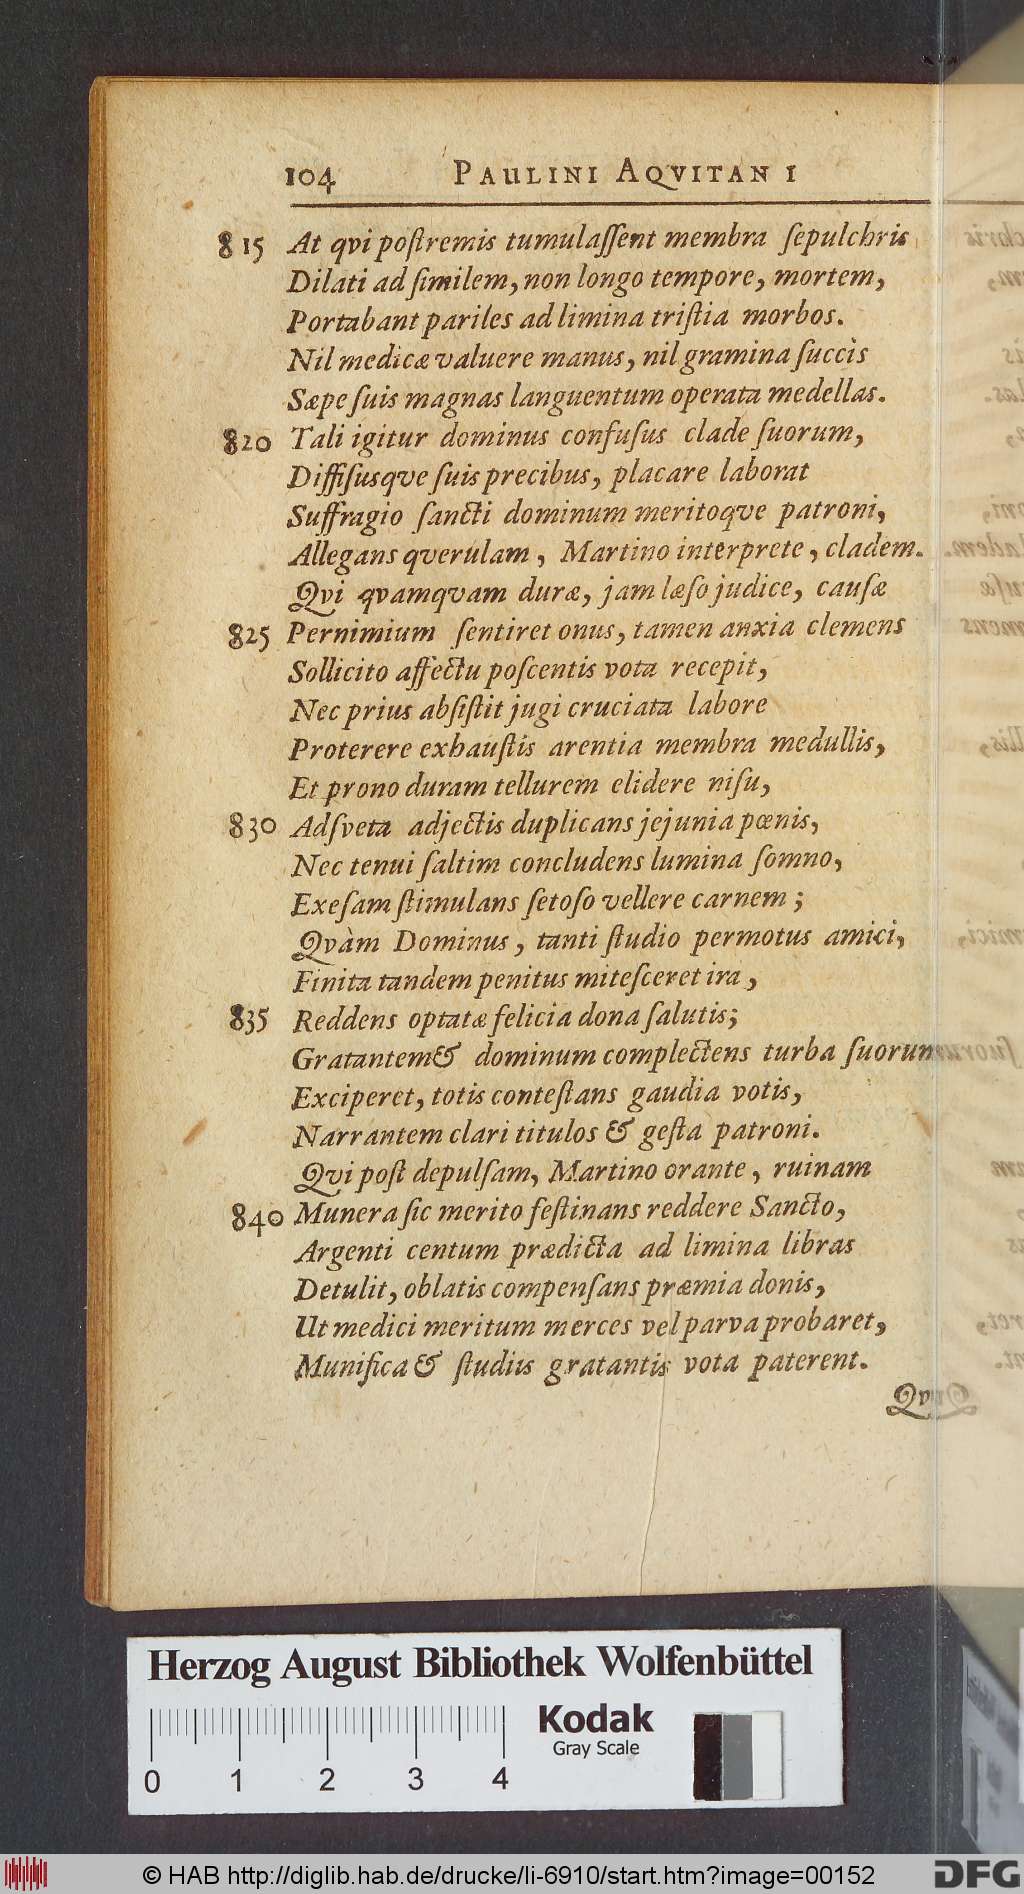 104 PAULINI AQVITANI
815 At qvi poſtremis tumulaſſent membra ſepulchris
Dilati ad ſimilem, non longo tempore, mortem,
Portabant pariles ad limina triſtia morbos.
Nil medicæ valuere manus, nil gramina ſuccìs
Sæpe ſuis magnas languentum operata medellas.
820 Tali igitur dominus confuſus clade ſuorum,
Diffiſusqve ſuis precibus, placare laborat
Suffragio ſancti dominum meritoqve patroni,
Allegans qverulam, Martino interprete, cladem.
Qvi qvamqvam duræ, jam læſo judice, cauſæ
825 Pernimium ſentiret onus, tamen anxia clemens
Sollicito affectu poſcentis vota recepit,
Nec prius abſiſtit jugi cruciata labore
Proterere exhauſtis arentia membra medullis,
Et prono duram tellurem elidere niſu,
830 Adſveta adjectis duplicans jejunia pœnis,
Nec tenui ſaltim concludens lumina ſomno,
Exeſam ſtimulans ſetoſo vellere carnem;
Qvàm Dominus, tanti ſtudio permotus amici,
Finita tandem penitus miteſceret ira,
835 Reddens optatæ felicia dona ſalutis;
Gratantem& dominum complectens turba ſuorum
Exciperet, totis conteſtans gaudia votis,
Narrantem clari titulos & geſta patroni.
Qvi poſt depulſam, Martino orante, ruinam
840 Munera ſic merito feſtinans reddere Sancto,
Argenti centum prædicta ad limina libras
Detulit, oblatis compenſans præmia donis,
Ut medici meritum merces vel parva probaret,
Munifica& ſtudiis gratantis vota paterent.
Herzog August Bibliothek Wolfenbüttel
Kodak
Gray Scale
0 1 2 3 4
© HAB http://diglib.hab.de/drucke/li-6910/start.htm?image=00152
DFG